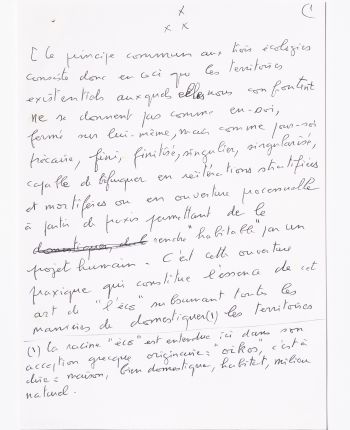 x
x x
(1
[ Le principe commun aux trois écologies
consiste donc en ceci que les territoires
existentiels auxquels elles nous confrontent
ne se donnent pas comme en-soi,
fermé sur lui-même, mais comme pour-soi
précaire, fini, finitisé, singulier, singularisé,
capable de bifurquer en réitérations stratifiées
et mortifères ou en ouverture processuelle
à partir de praxis permettant de le
domestiquer, de le rendre "habitable" par un
projet humain. C'est cette ouverture
praxique qui constitue l'essence de cet
art de "l'éco" subsumant toutes les
manières de domestiquer(1) les territoires
(1) La racine "éco" est entendue ici dans son
acception grecque originaire : "oïkos", c'est à
dire : maison, bien domestique, habitat, milieu
naturel.